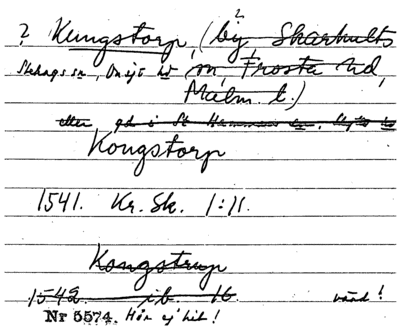 ?
? Kungstorp, (by, Skarhults
Stehags sn, Onsjö hd sn, Frosta hd,
Malm. l.)
eller gd i St Hammars sn, Skytts hd
Kongstorp
1541. Kr. Sk. 1:11.
Kongstrup
1542. ib. 16. värd!
Nr 5574. Hör ej hit!